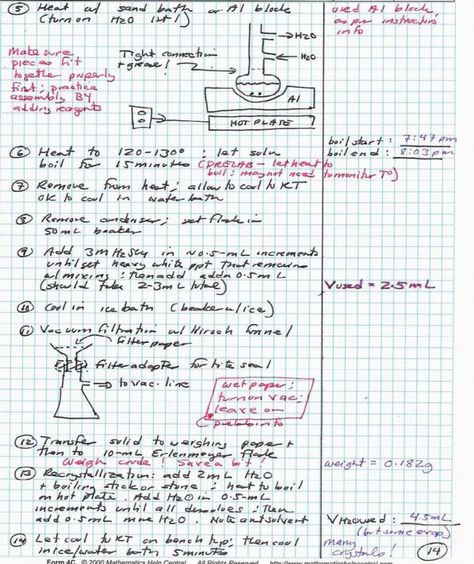 ⑤ Heat w/ sand bath or Al block
(turn on H2O 1st!)
used Al block,
as per instructor
info
Make sure
pieces fit
together properly
first; practice
assembly B4
adding reagents
Tight connection
+ grease!
→H2O
←H2O
Al
HOT PLATE
⑥ Heat to 120-130°; let soln
boil for 15 minutes (PRELAB - let heat to
boil; may not need to monitor T°)
boil start: 7:47 pm
boil end: 8:03 pm
⑦ Remove from heat; allow to cool to RT
OK to cool in water bath
⑧ Remove condenser; set flask in
50 mL beaker
⑨ Add 3M H2SO4 in ~0.5-mL increments
until get heavy white ppt that remains
w/ mixing; then add addn 0.5 mL
(should take 2-3 mL total)
Vused = 2.5 mL
⑩ Cool in ice bath (beaker w/ ice)
⑪ Vacuum filtration w/ Hirsch funnel
filter paper
filter adapter for tite seal
→ to vac. line
wet paper;
turn on vac;
leave on
(prelab info
⑫ Transfer solid to weighing paper +
then to 10-mL Erlenmeyer flask
Weigh crude! Save a bit!
weight = 0.182g
⑬ Recrystallization: add 2mL H2O
+ boiling stick or stone; heat to boil
on hot plate. Add H2O in 0.5-mL
increments until all dissolves; then
add 0.5 mL more H2O. Note amt solvent
VH2O used: 4.5 mL
(but some evap)
⑭ Let cool to RT on bench top; then cool
in ice/water bath 5 minutes
many
crystals!
⑭
Form 4C © 2000 Mathematics Help Central All Rights Reserved http://www.mathematicshelpcentral.com